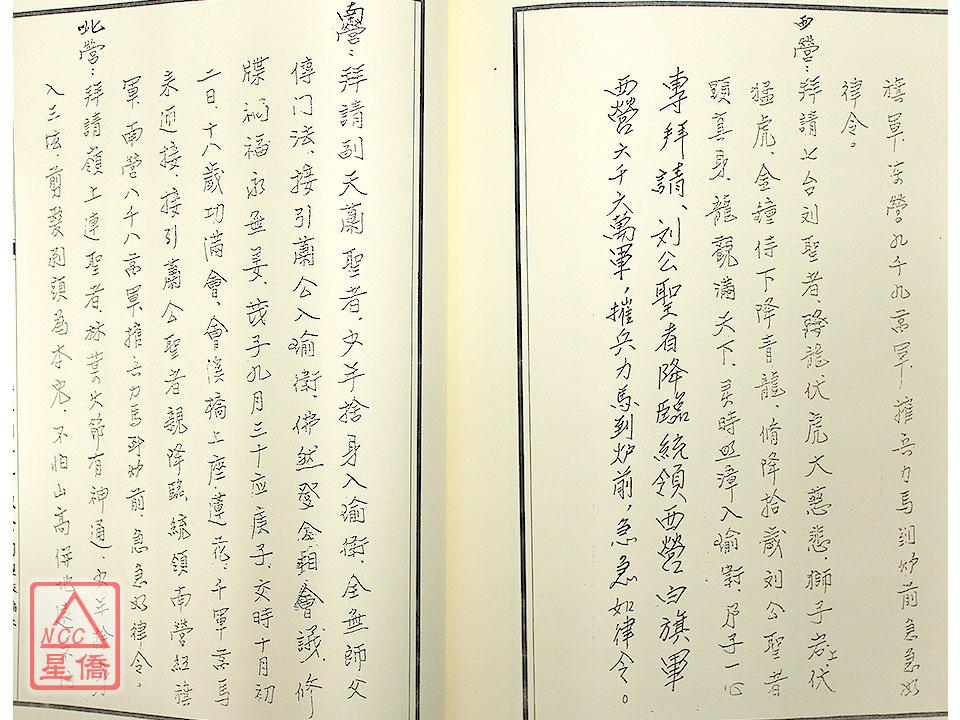 旗軍、东營九千九萬軍、摧兵力馬到炉前急急如
律令。
西營：拜請七台刘聖者、降龍伏虎大慈悲、獅子岩上伏
猛虎、金鐘侍下降青龍、脩降拾歲刘公聖者
顕真身、龍觀滿天下、灵時 漳入瑜 、 子一心
專拜請、刘公聖者降臨統領、西營白旗軍
西營六千六萬軍，摧兵力馬到炉前，急急如律令。
南營：拜請 天蕭聖者、少年捨身入瑜衡、全無師父
傳门法、接引蕭公入瑜衡、佛然登金 會議、修
牒 福永無姜、戊子九月三十应庚子、交時十月初
二日、十八歲功滿會、會溪橋上座蓮花、千軍萬馬
来迎接、接引蕭公聖者親降臨統領南營紅旗
軍、南營八千八萬軍、摧兵力馬 炉前、急急如律令。
北營：拜請嶺上連聖者、林葉火節有神通、少年
入三坛、剪髮剃頭為 、不怕山高併地
NCC
星僑